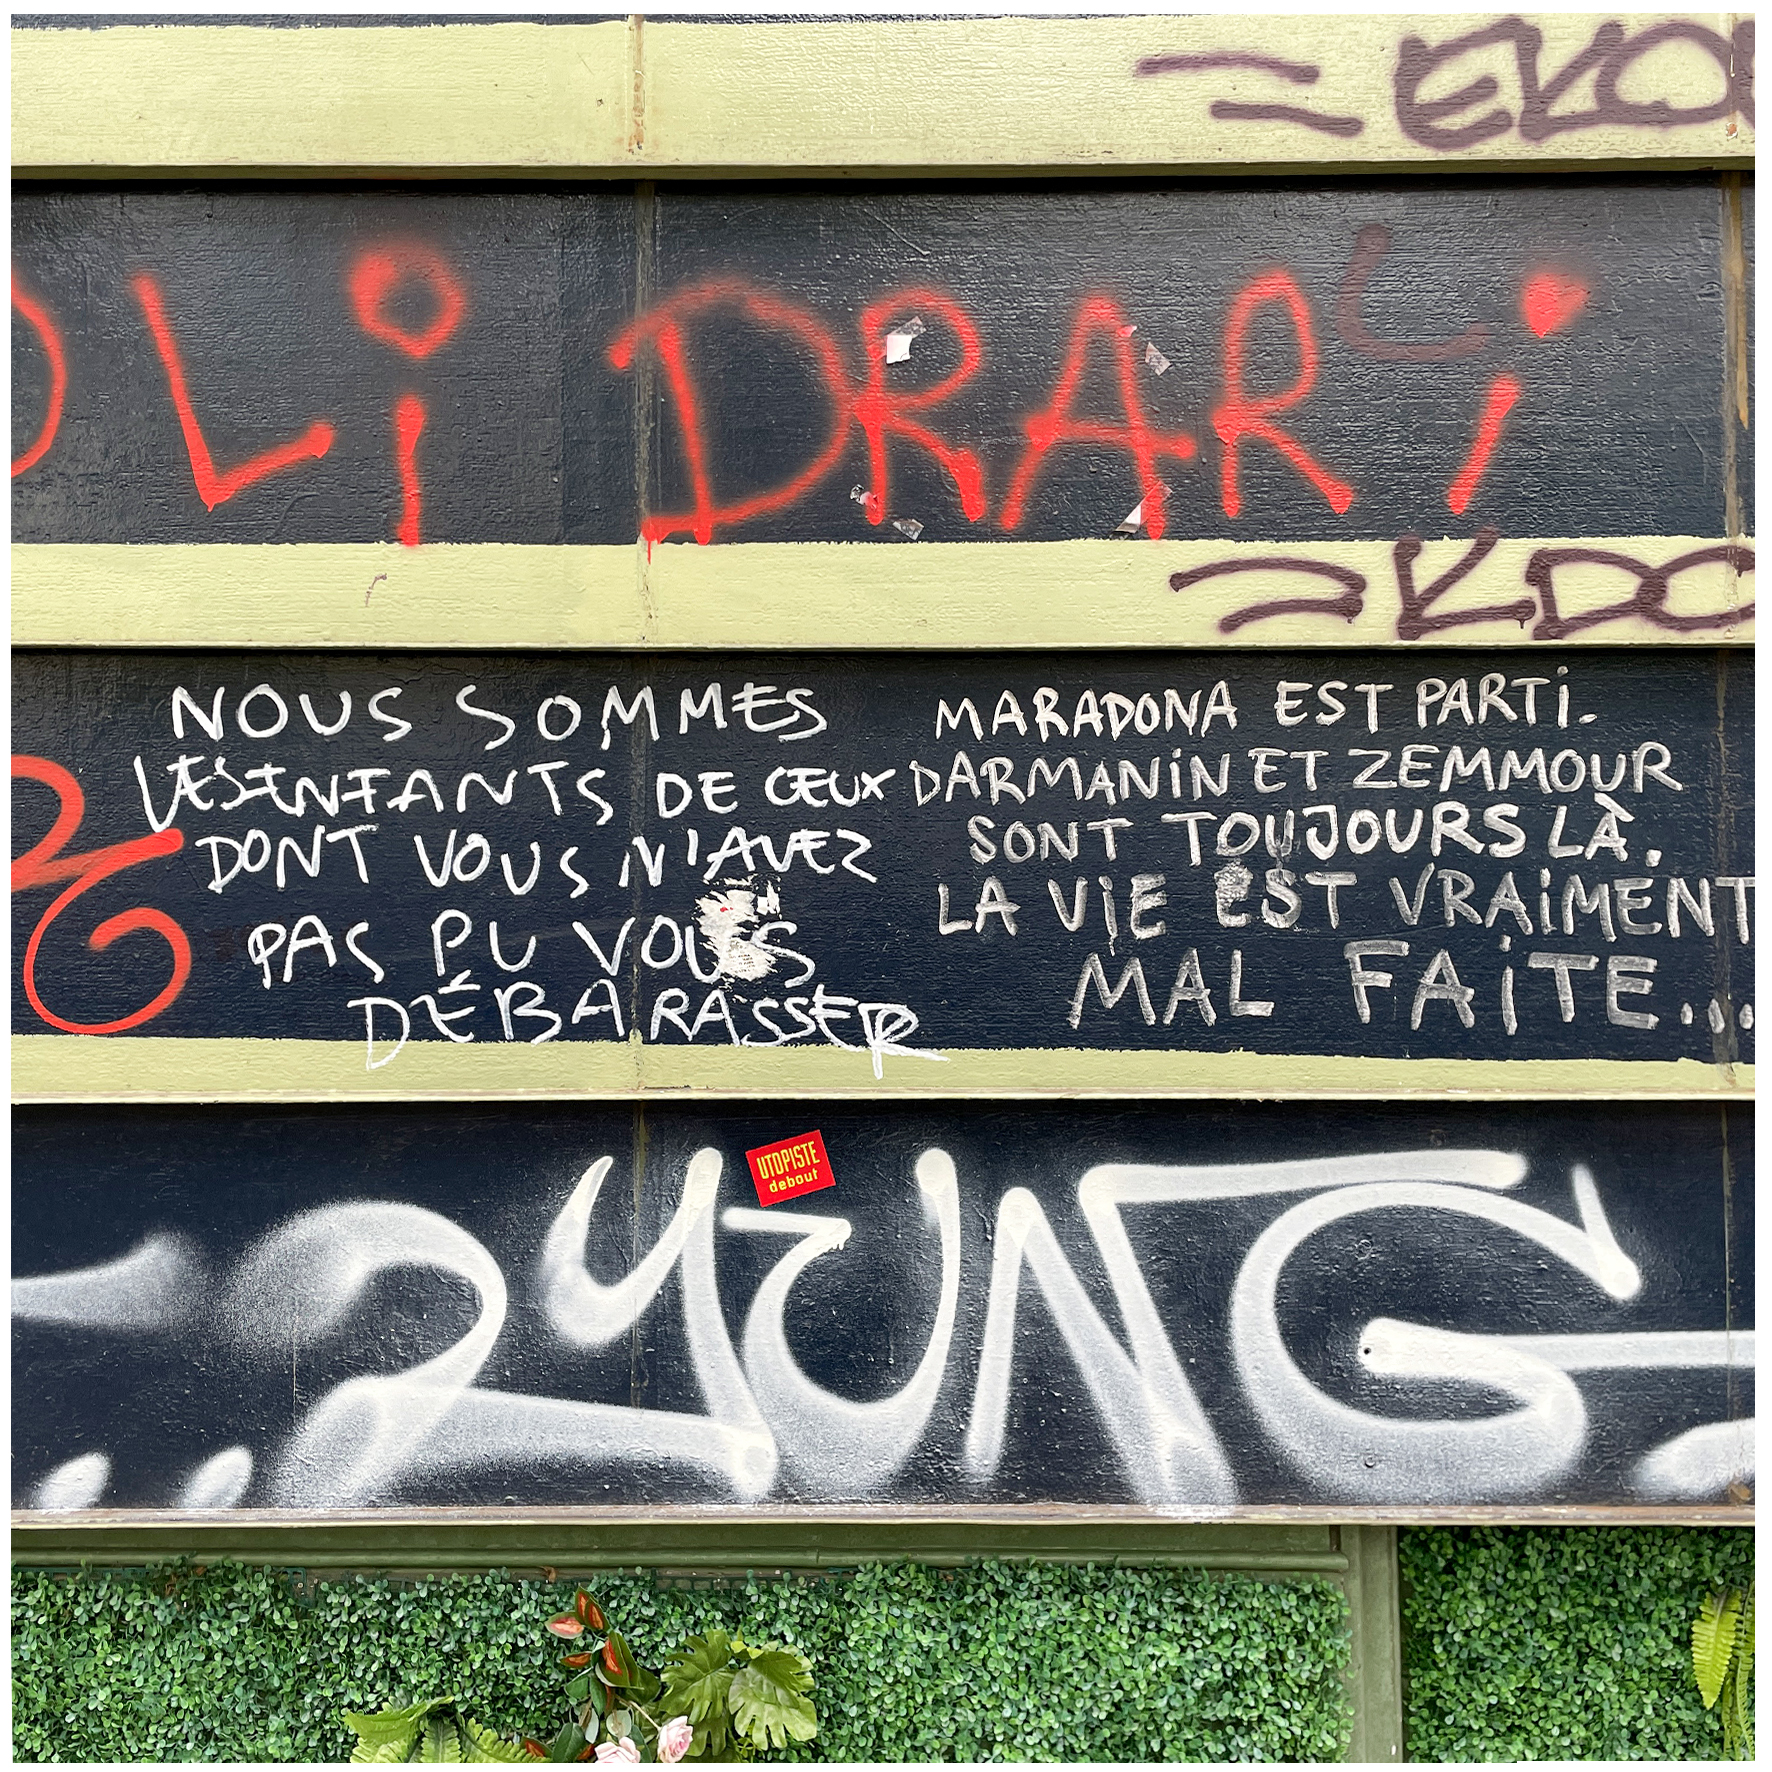 Li DRARi
NOUS SOMMES
LES ENFANTS DE CEUX
DONT VOUS N'AVEZ
PAS PU VOUS
DÉBARASSER
MARADONA EST PARTi.
DARMANiN ET ZEMMOUR
SONT TOUJOURS LÀ.
LA ViE EST VRAiMENT
MAL FAiTE...
UTOPISTE
debout
YUNG